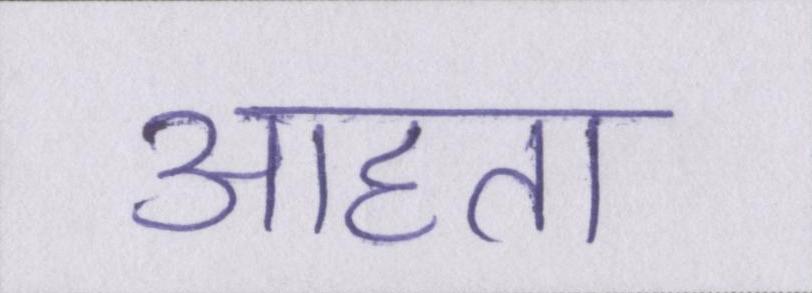 आहता